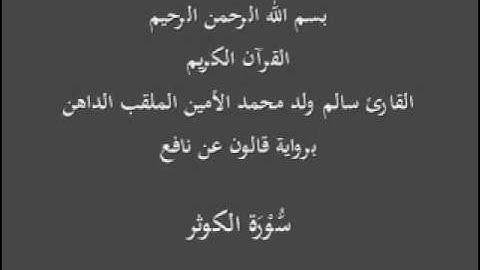 بسم الله الرحمن الرحيم
القرآن الكريم
القارئ سالم ولد محمد الأمين الملقب الداهن
برواية قالون عن نافع
سُّوْرَة الكوثر